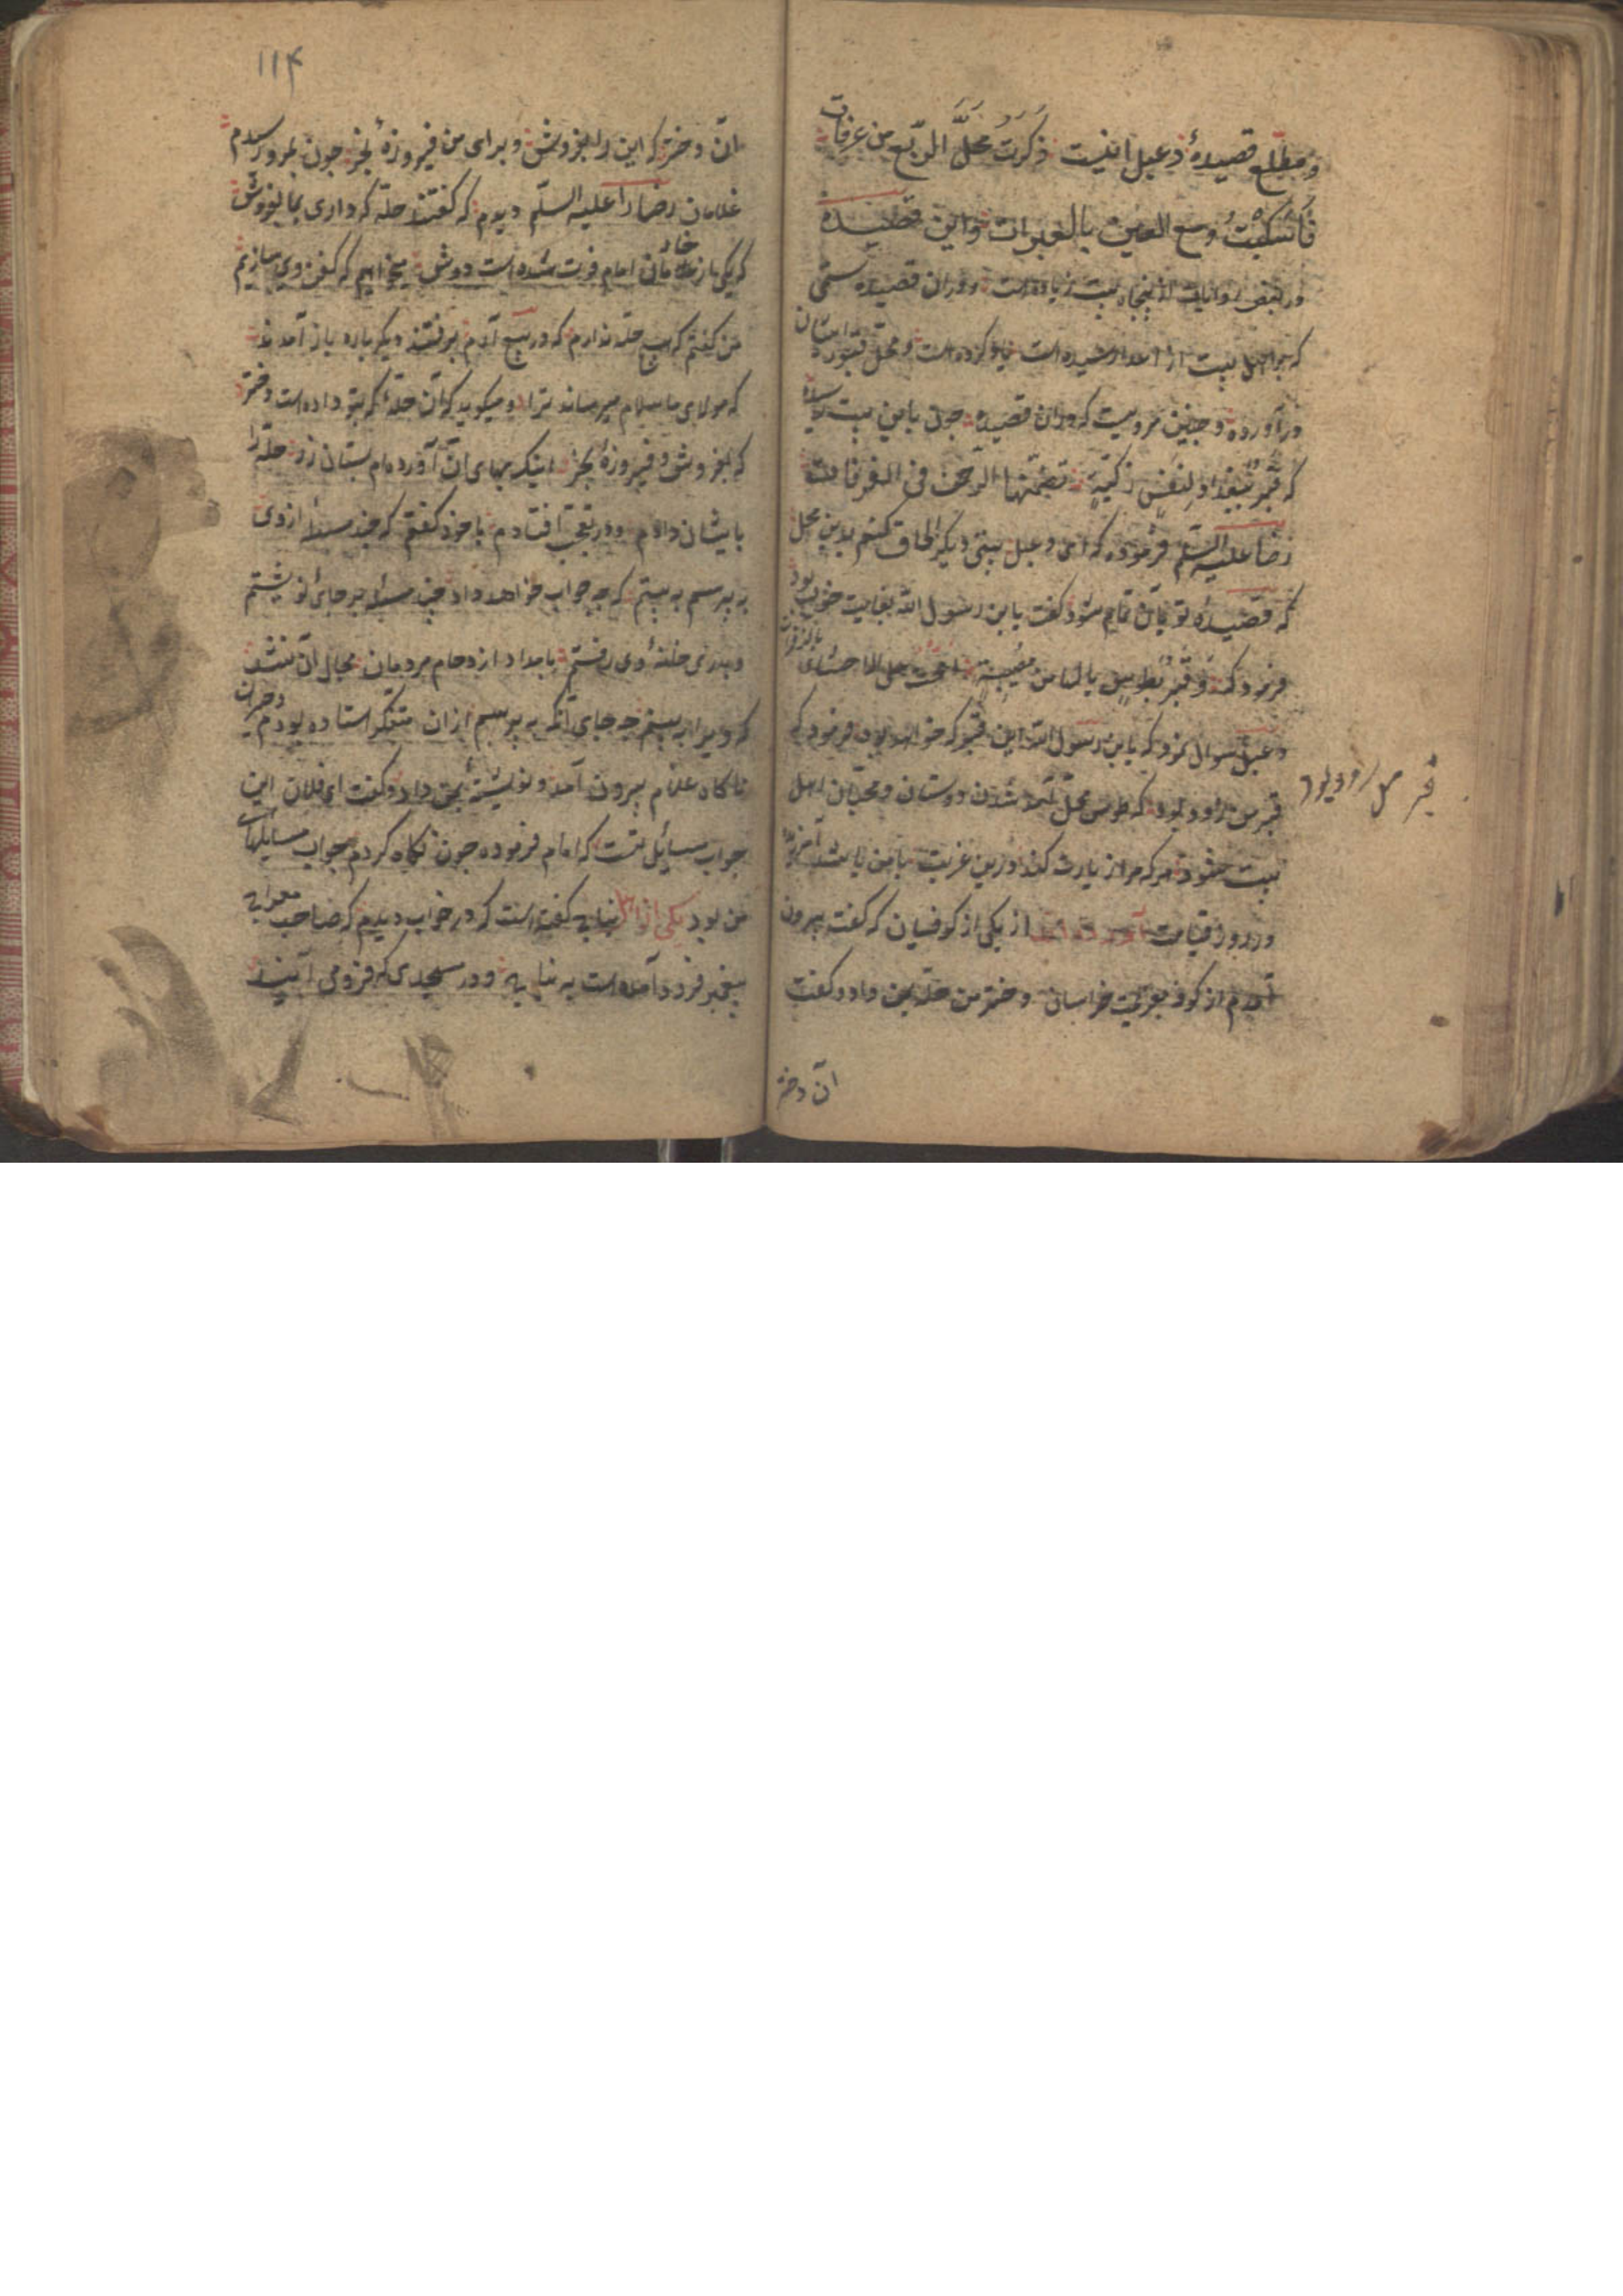 و مطلع قصیدهٔ دعبل اینست ذَکَرتُ محلَّ الرّبع من عرفات
فَاَسکبتُ دمع العین بالعبرات و این قصیده
در بعض روایات از پنجاه بیت زیاده است و در ان قصیده ستمی
که بر اهل بیت از اعدا رسیده است یاد کرده است و محل قبور ایشان
در آورده و چنین مرویست که در ان قصیده چون باین بیت رسیده
که قبرٌ ببغداد لنفسٍ زکیّةٍ تضمّنها الرّحمن فی الغرفات
رضا علیه السّلم فرموده که ای دعبل بیتی دیگر الحاق کنم بدین محل
که قصیدهٔ تو بآن تمام شود گفت یابن رسول الله بغایت خوب بود
فرمود که و قبرٌ بطوس یالها من مصیبةٍ الحّت علی الاحشاء بالزفرات
دعبل سوال کرد که یابن رسول الله این قبر که خواهد بود فرمود که
قبر من زاود بود که طوس محل آمد شدن دوستان و محبّان اهل
بیت شود هر که مرا زیارت کند درین غربت با من باشد آمرزیده
در روز قیامت آورده اند از یکی از کوفیان که گفت بیرون
آمدم از کوفه بعزیمت خراسان دختر من حلّه بمن داد و گفت
ان دختر
۱۱۴
ان دختر که این را بفروش و برای من فیروزهٔ بخر چون بمرو رسیدم
غلامان رضا را علیه السّلم دیدم که گفتند حلّه که داری بما بفروش
که یکی از خادمان امام فوت شده است دوش میخواهیم که کفن وی سازیم
من گفتم که هیچ حلّه ندارم که در بیع آدم برفتند دیگر باره باز آمدند
که مولای ما سلام میرساند ترا و میکوید که آن حلّهٔ که بتو داده است دختر
که بفروش و فیروزهٔ بخر اینک بهای آن آورده ام بستان زر حلّه را
بایشان دادم و در تعجّب افتادم با خود گفتم که چند مسئله از وی
به پرسم به بینم که چه جواب خواهد داد چند مسئله بر جای نوشتم
و بدر خانهٔ وی رفتم بامداد از دحام مردمان مجال آن نشد
که ویرا به بینم چه جای آنکه به پرسم از ان متفکر استاده بودم و حیران
ناکاه غلام بیرون آمد و نوشتهٔ بمن داد و کفت ای فلان این
جواب مسایل تست که امام فرموده چون نگاه کردم جواب مسایلهای
من بود یکی از اهل نباج گفته است که در خواب دیدم که صاحب
پیغمبر فرود آمده است به نباج و در مسجدی که فرو می آیند